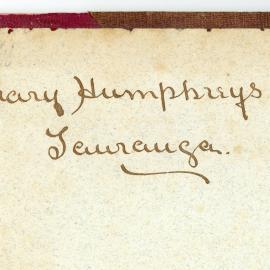 mary Humphreys
Tauranga.